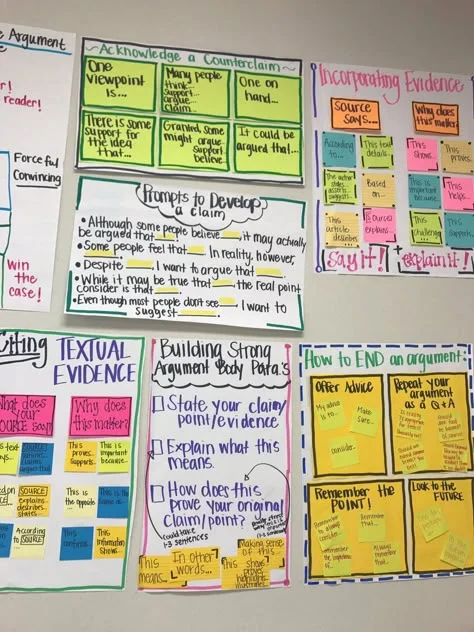 Argument
r!
reader!
Forceful
Convincing
win
the
case!
~Acknowledge a Counterclaim~
One
viewpoint
is...
Many people
think...
support...
argue...
claim...
One on
hand...
There is some
support for
the idea
that...
Granted, some
might argue
support...
believe...
It could be
argued that...
Prompts to Develop
a claim
• Although some people believe ___, it may actually
be argued that ___.
• Some people feel that ___. In reality, however,
• Despite ___, I want to argue that ___.
• While it may be true that ___, the real point
Consider is that ___.
• Even though most people don't see ___, I want to
suggest ___.
Incorporating Evidence
Source
says...
Why does
this matter?
According
to...
This text
details...
This
shows...
This
proves...
Based
on...
This is
important
because...
This
helps...
This
article
describes
Source
explains...
This
challenges...
This
supports...
Say it! + Explain it!
Citing TEXTUAL
EVIDENCE
What does
your
SOURCE say?
Why does
this matter?
This
proves...
supports...
This is
important
because...
SOURCE
explains...
describes...
states...
This is
the opposite
This is the
same as...
According
to
SOURCE...
This
confirms...
This
information
shows...
Building Strong
Argument Body Para.'s
State your claim/
point/evidence
Explain what this
means.
How does this
prove your original
claim/point?
(could have
1-3 sentences
This
means...
In other
words...
Making sense
of this...
This shows
proves
highlights
illustrates...
How to END an argument:
Offer Advice
My advice
is to...
Make
sure...
consider...
Repeat your
argument
as a Q & A
Remember the
POINT!
Remember
to always
consider...
Remember
that...
Remember
the importance
of...
Always
remember
that...
Look to the
FUTURE